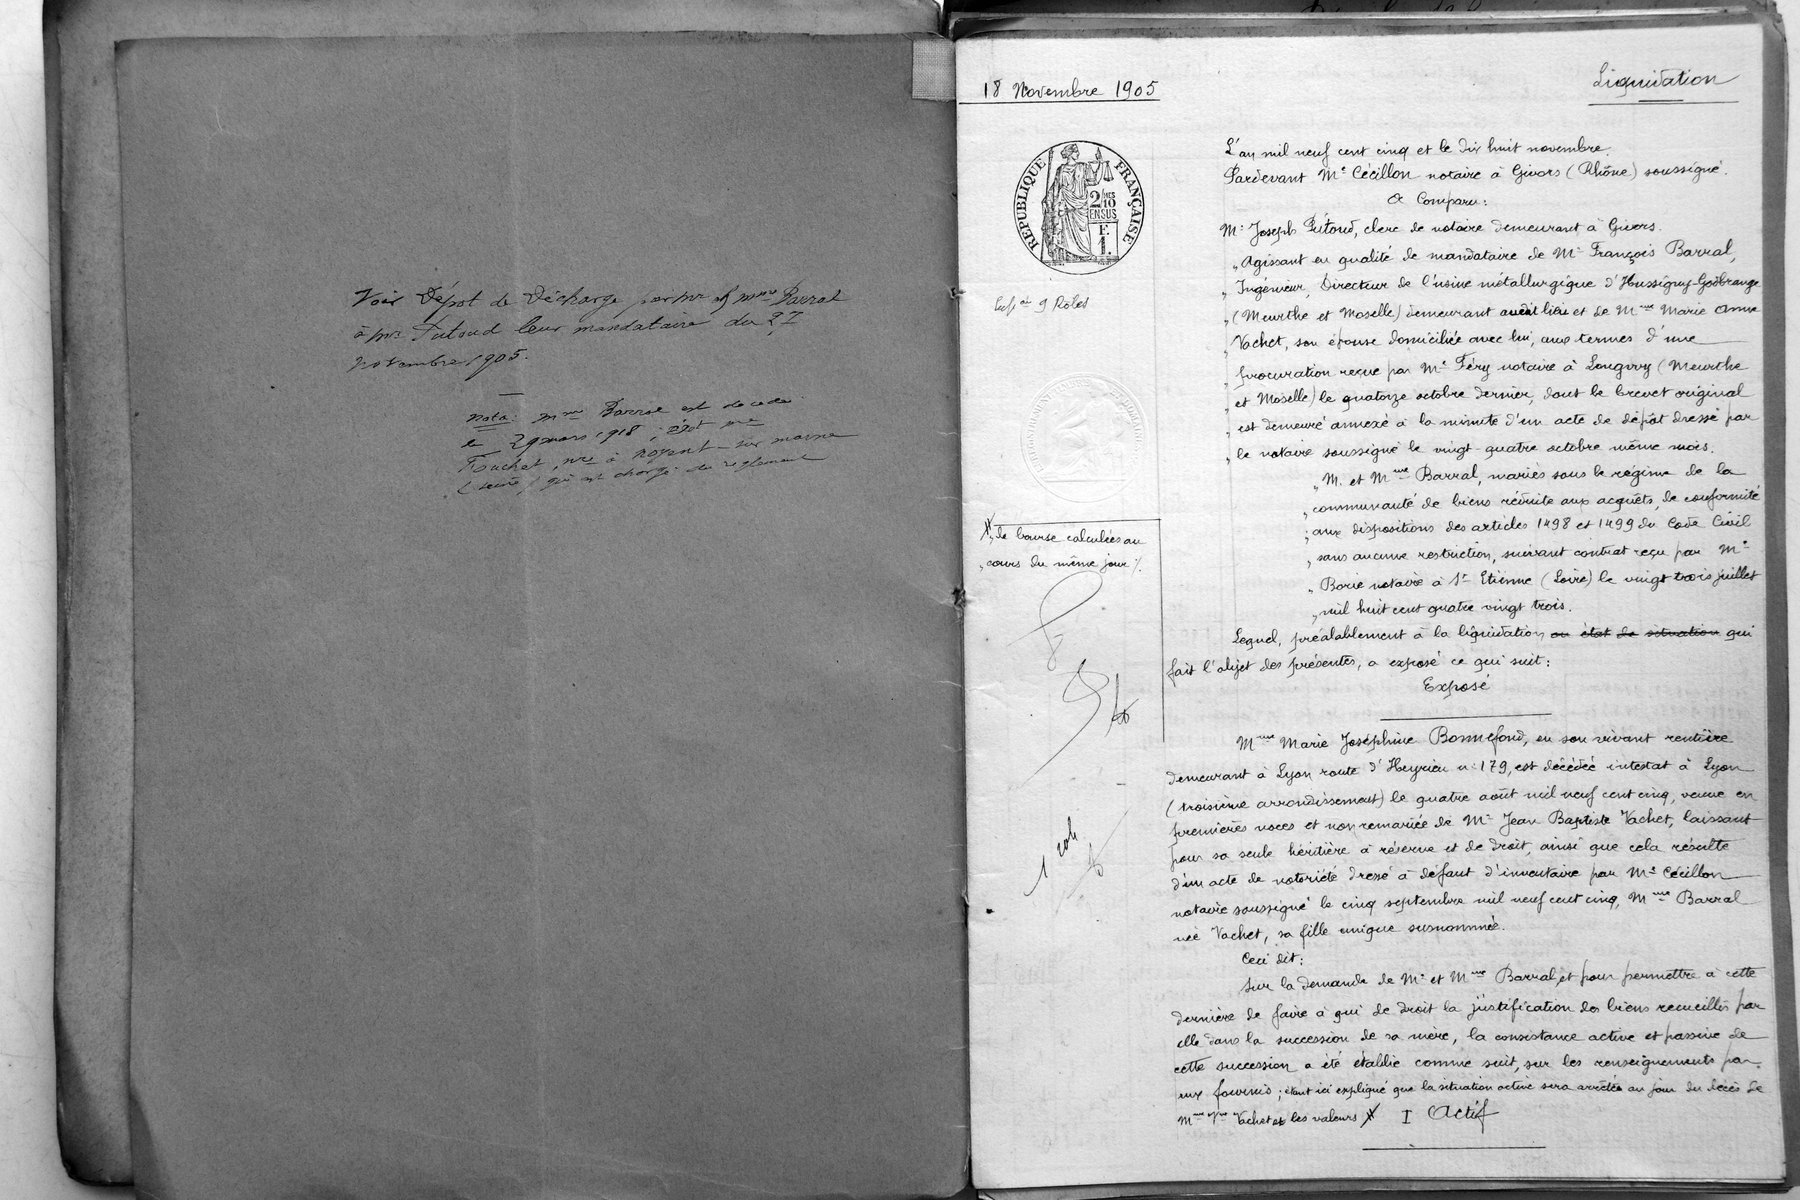 Voir Dépôt de Décharge par mr et mme Barral
à mr Putoud leur mandataire du 27
Novembre 1905.
Nota: mme Barral est décédée
le 29 mars 1918; Dépôt me
Fouchet, nre à Nogent-sur marne
(Seine) qui est chargé de règlement
18 Novembre 1905
Liquidation
RÉPUBLIQUE FRANÇAISE
2/10
EN SUS
F.
1.
9 Rôles
L'an mil neuf cent cinq et le dix huit novembre.
Pardevant Me Cécillon notaire à Givors (Rhône) soussigné.
A Comparu:
Mr Joseph Putoud, clerc de notaire demeurant à Givors.
„ Agissant en qualité de mandataire de Mr François Barral,
„ Ingénieur, Directeur de l'usine métallurgique d'Hussigny-Godbrange
„ (Meurthe et Moselle) demeurant audit lieu et de Mme Marie Anne
„ Vachet, son épouse domiciliée avec lui, aux termes d'une
„ procuration reçue par Me Féry notaire à Longwy (Meurthe
„ et Moselle) le quatorze octobre dernier, dont le brevet original
„ est demeuré annexé à la minute d'un acte de dépôt dressé par
„ le notaire soussigné le vingt-quatre octobre même mois.
„ M. et Mme Barral, mariés sous le régime de la
„ communauté de biens réduite aux acquêts, de conformité
„ aux dispositions des articles 1498 et 1499 du Code Civil
„ sans aucune restriction, suivant contrat reçu par Me
„ Borie notaire à St Etienne (Loire) le vingt trois juillet
„ mil huit cent quatre vingt trois.
Lequel, préalablement à la liquidation ou état de situation qui
fait l'objet des présentes, a exposé ce qui suit:
Exposé
Mme Marie Joséphine Bonnefond, en son vivant rentière
demeurant à Lyon route d'Heyrieu n: 179, est décédée intestat à Lyon
(troisième arrondissement) le quatre août mil neuf cent cinq, veuve en
premières noces et non remariée de Mr Jean Baptiste Vachet, laissant
pour sa seule héritière à réserve et de droit, ainsi que cela résulte
d'un acte de notoriété dressé à défaut d'inventaire par Me Cécillon
notaire soussigné le cinq septembre mil neuf cent cinq, Mme Barral
née Vachet, sa fille unique susnommée.
Ceci dit:
Sur la demande de Mr et Mme Barral, et pour permettre à cette
dernière de faire à qui de droit la justification des biens recueillis par
elle dans la succession de sa mère, la consistance active et passive de
cette succession a été établie comme suit, sur les renseignements par
eux fournis; étant ici expliqué que la situation active sera arrêtée au jour du décès de
Mme Vve Vachet et les valeurs
I Actif
„ de bourse calculées au
„ cours du même jour ./.